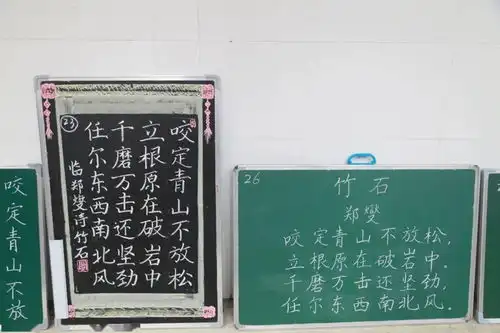 咬定青山不放
23
咬定青山不放松
立根原在破岩中
千磨万击还坚劲
任尔东西南北风
临郑燮诗竹石
26
竹石
郑燮
咬定青山不放松,
立根原在破岩中.
千磨万击还坚劲,
任尔东西南北风.